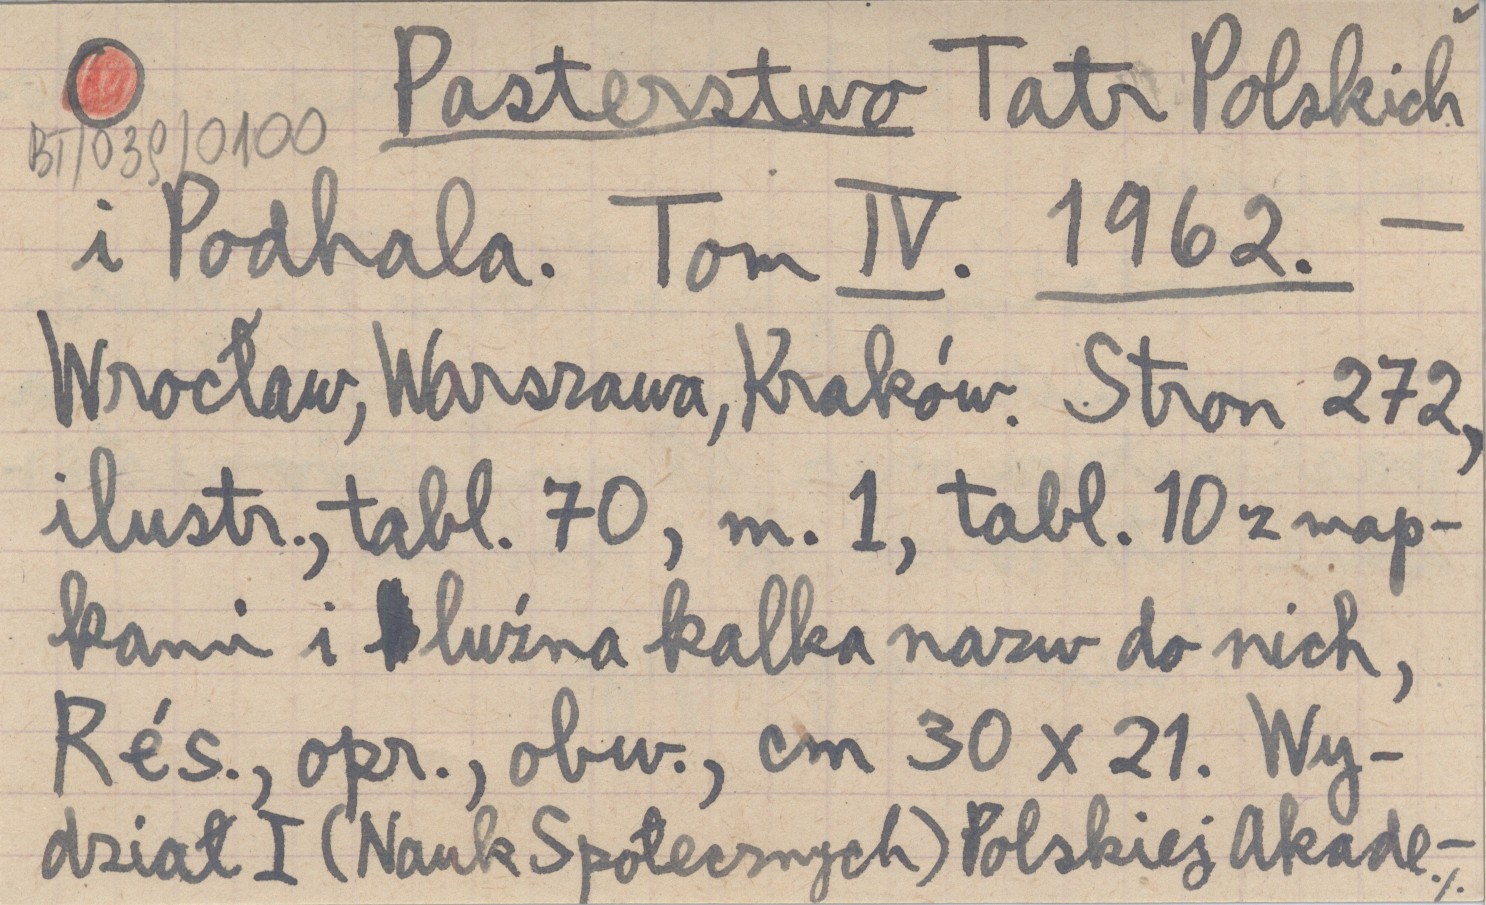 Pasterstwo Tatr Polskich
BT/039/0100
i Podhala. Tom IV. 1962. —
Wrocław, Warszawa, Kraków. Stron 272,
ilustr., tabl. 70, m. 1, tabl. 10 z map-
kami i luźna kalka nazw do nich,
Rés., opr., obw., cm 30 x 21. Wy-
dział I (Nauk Społecznych) Polskiej Akade-
./.